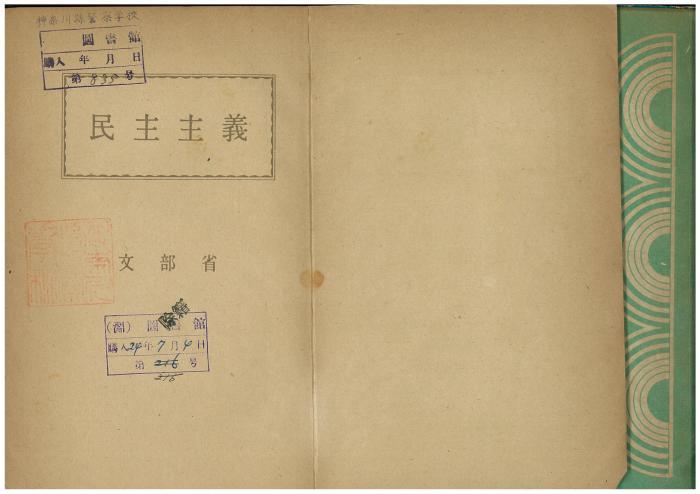 神奈川縣警察学校
圖書館
購入 年 月 日
第 835 号
民主主義
文部省
(淵) 圖書館
購入24年7月4日
第 216 号
216